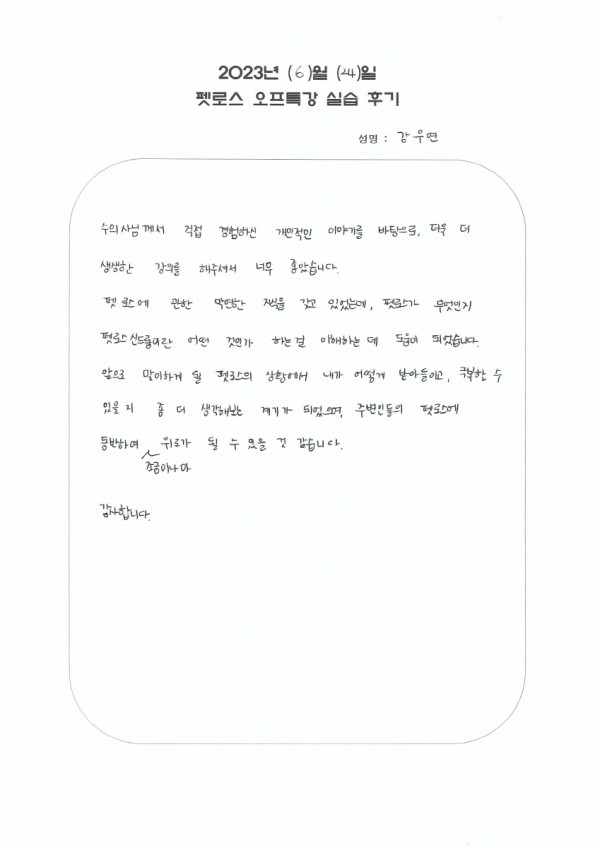 2023년 (6)월 (24)일
펫로스 오프특강 실습 후기
성명 : 강우연
수의사님께서 직접 경험하신 개인적인 이야기를 바탕으로, 더욱 더
생생한 강의를 해주셔서 너무 좋았습니다.
펫로스에 관한 막연한 지식을 갖고 있었는데, 펫로스가 무엇인지
펫로스신드롬이란 어떤 것인가 하는걸 이해하는 데 도움이 되었습니다.
앞으로 맞이하게 될 펫로스의 상황에서 내가 어떻게 받아들이고, 극복할 수
있을지 좀 더 생각해보는 계기가 되었으며, 주변인들의 펫로스에
동반하여 위로가 될 수 있을 것 같습니다.
조금이나마
감사합니다.